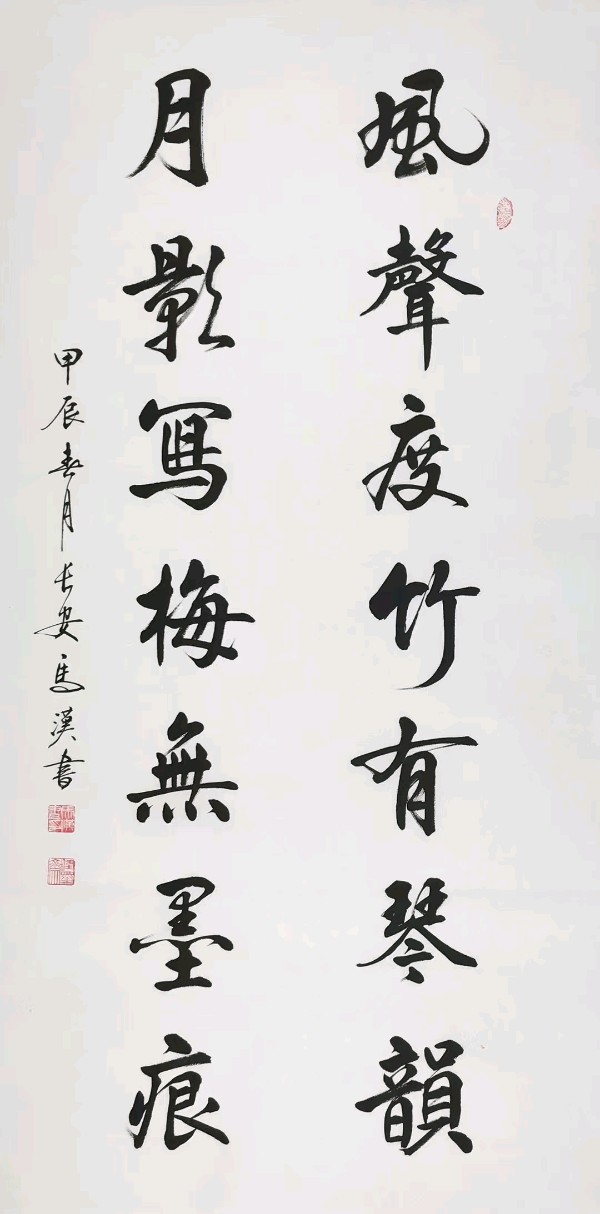 風聲度竹有琴韻
月影寫梅無墨痕
甲辰春月長安馬漢書